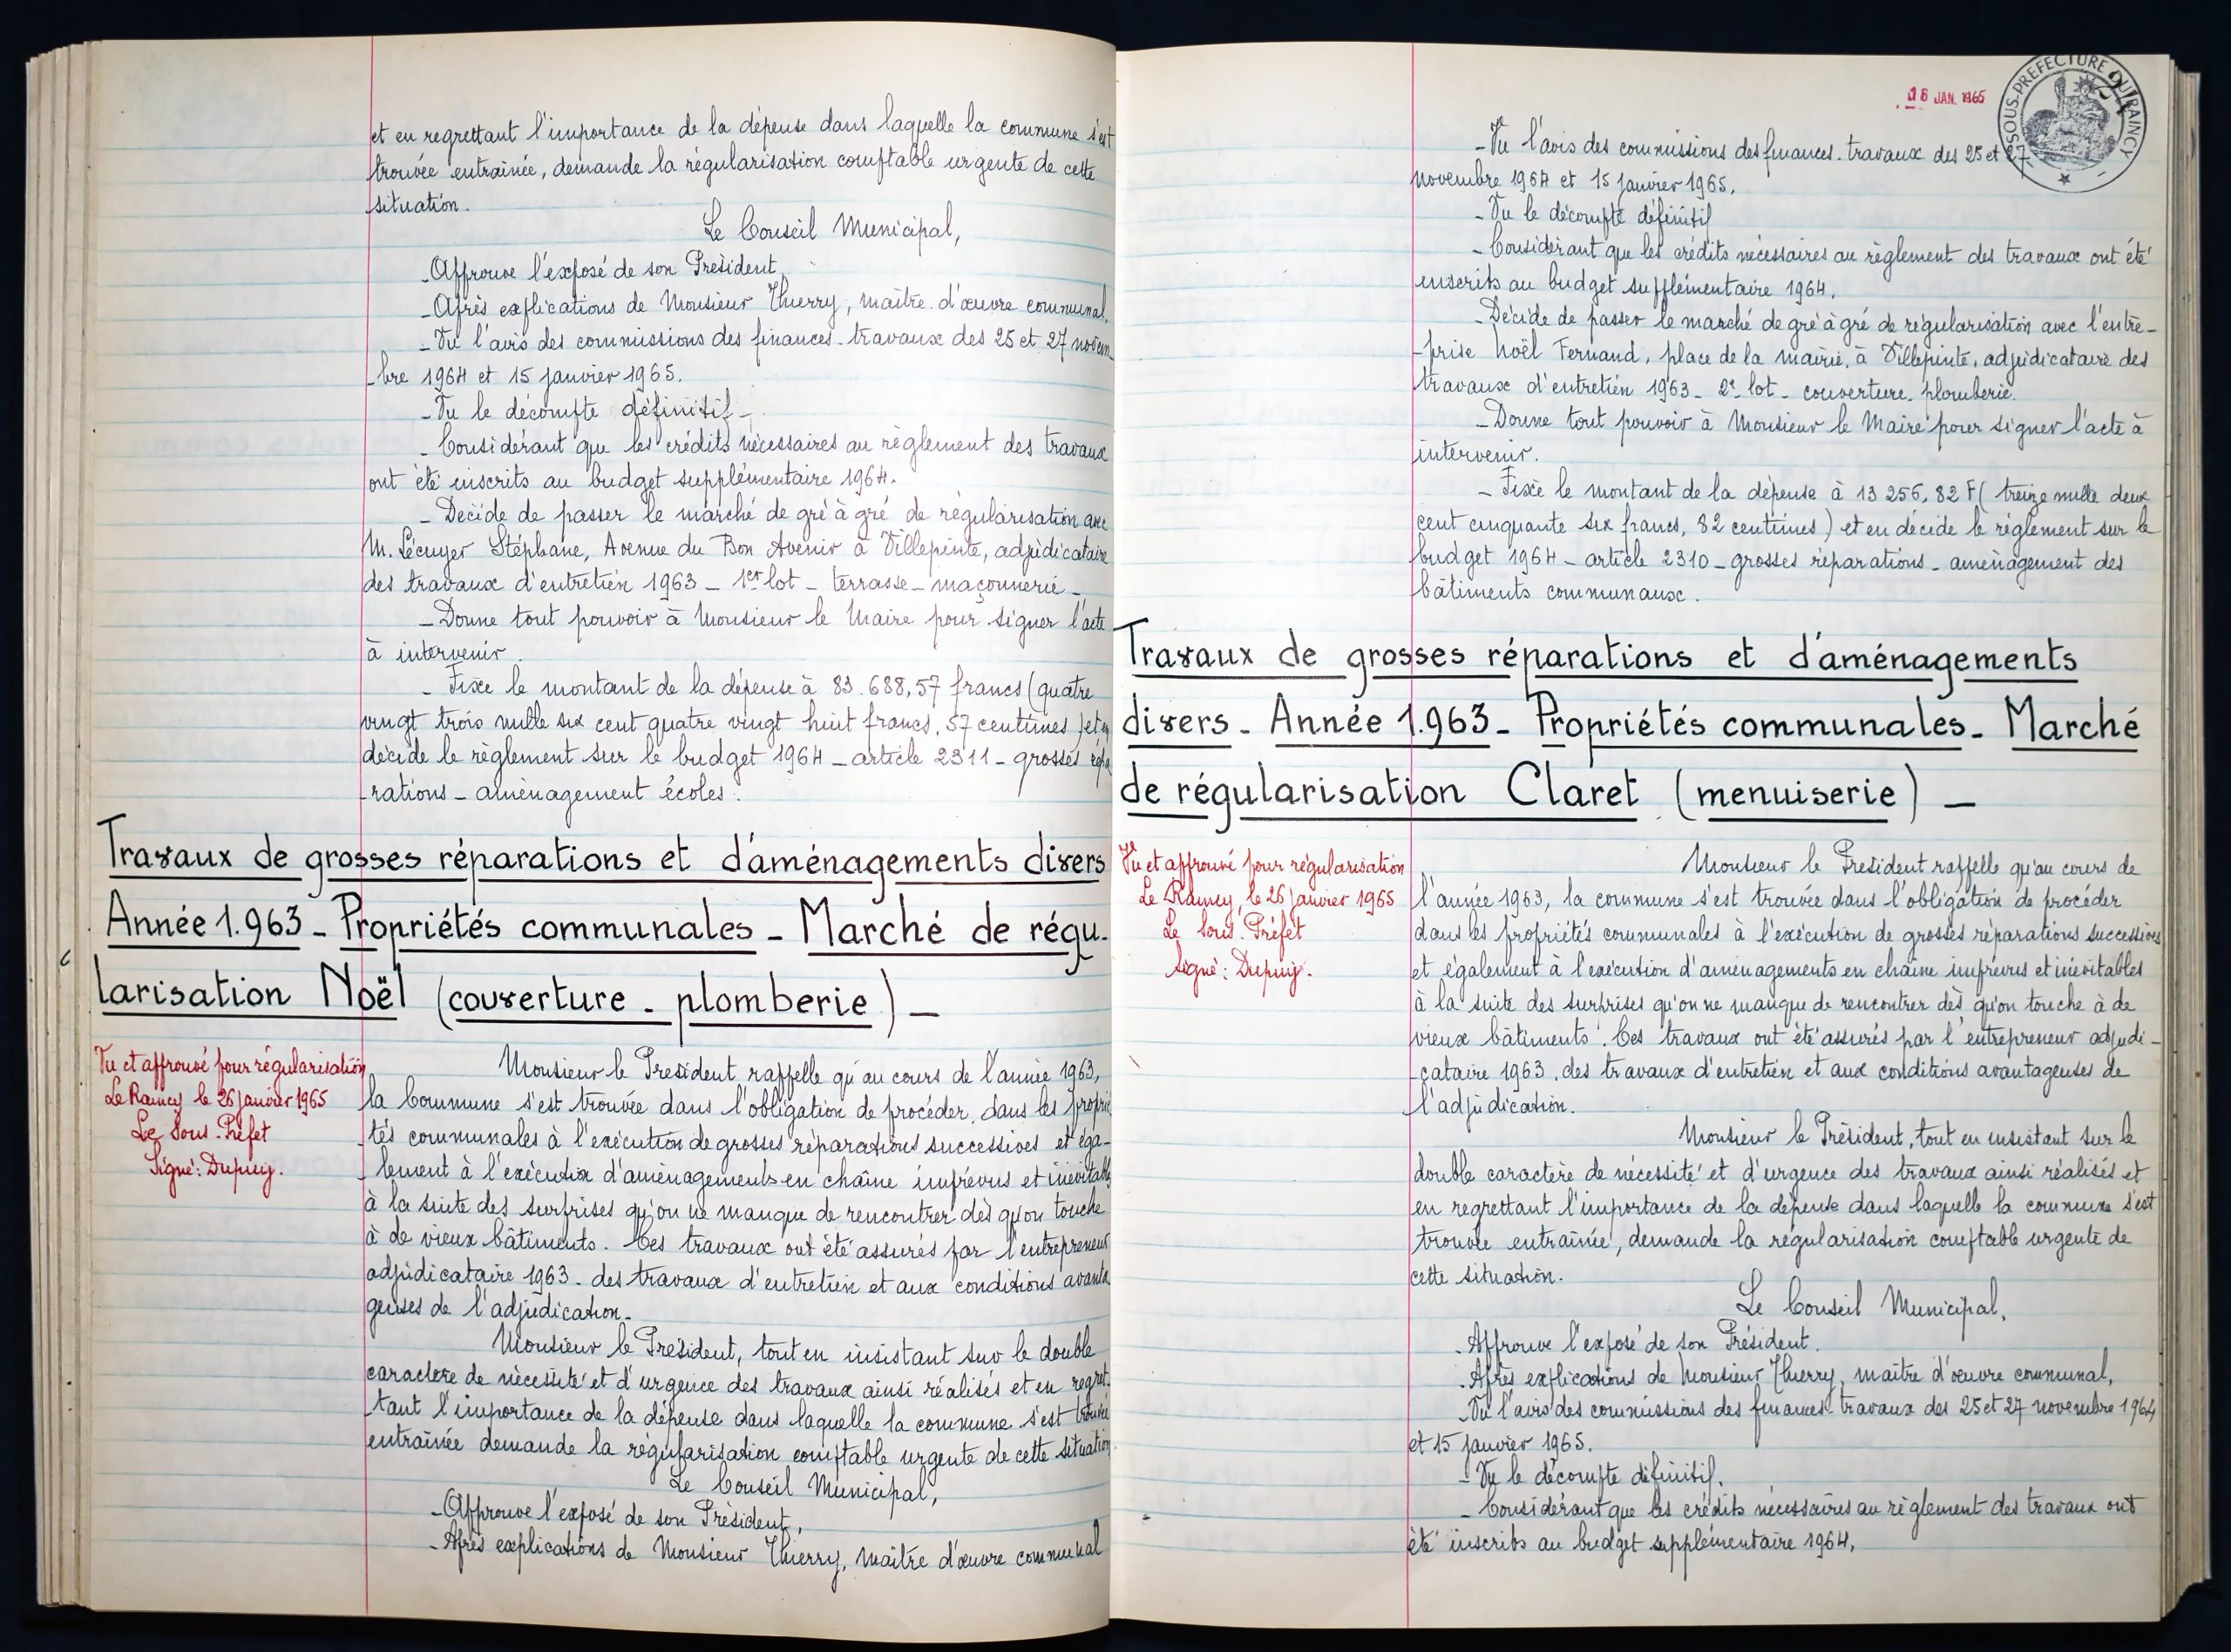 et en regrettant l'importance de la dépense dans laquelle la commune s'est
trouvée entraînée, demande la régularisation comptable urgente de cette
situation.
Le Conseil Municipal,
- Approuve l'exposé de son Président,
- Après explications de Monsieur Thierry, maître d'œuvre communal,
- Vu l'avis des commissions des finances - travaux des 25 et 27 novem
-bre 1964 et 15 janvier 1965.
- Vu le décompte définitif -
- Considérant que les crédits nécessaires au règlement des travaux
ont été inscrits au budget supplémentaire 1964.
- Décide de passer le marché de gré à gré de régularisation avec
M. Lécuyer Stéphane, Avenue du Bon Avenir à Villepinte, adjudicataire
des travaux d'entretien 1963 - 1er lot - terrasse - maçonnerie -
- Donne tout pouvoir à Monsieur le Maire pour signer l'acte
à intervenir.
- Fixe le montant de la dépense à 83.688,57 francs (quatre
vingt trois mille six cent quatre vingt huit francs, 57 centimes) et en
décide le règlement sur le budget 1964 - article 2311 - grosses répa
-rations - aménagement écoles.
Travaux de grosses réparations et d'aménagements divers
Année 1.963 - Propriétés communales - Marché de régu-
larisation Noël (couverture - plomberie) -
Vu et approuvé pour régularisation
Le Raincy le 26 janvier 1965
Le Sous-Préfet
Signé: Dupuy.
Monsieur le Président rappelle qu'au cours de l'année 1963,
la Commune s'est trouvée dans l'obligation de procéder, dans les proprié
-tés communales à l'exécution de grosses réparations successives et éga-
-lement à l'exécution d'aménagements en chaîne imprévus et inévitables
à la suite des surprises qu'on ne manque de rencontrer dès qu'on touche
à de vieux bâtiments. Ces travaux ont été assurés par l'entrepreneur
adjudicataire 1963 - des travaux d'entretien et aux conditions avanta
geuses de l'adjudication.
Monsieur le Président, tout en insistant sur le double
caractère de nécessité et d'urgence des travaux ainsi réalisés et en regret-
-tant l'importance de la dépense dans laquelle la commune s'est trouvée
entraînée demande la régularisation comptable urgente de cette situation
Le Conseil Municipal,
- Approuve l'exposé de son Président,
- Après explications de Monsieur Thierry, maître d'œuvre communal
18 JAN. 1965
SOUS-PREFECTURE DU RAINCY
- Vu l'avis des commissions des finances - travaux des 25 et 27
novembre 1964 et 15 janvier 1965.
- Vu le décompte définitif
- Considérant que les crédits nécessaires au règlement des travaux ont été
inscrits au budget supplémentaire 1964.
- Décide de passer le marché de gré à gré de régularisation avec l'entre-
-prise Noël Fernand, place de la mairie, à Villepinte, adjudicataire des
travaux d'entretien 1963 - 2e lot - couverture - plomberie.
- Donne tout pouvoir à Monsieur le Maire pour signer l'acte à
intervenir.
- Fixe le montant de la dépense à 13 256, 82 F (treize mille deux
cent cinquante six francs, 82 centimes) et en décide le règlement sur le
budget 1964 - article 2310 - grosses réparations - aménagement des
bâtiments communaux.
Travaux de grosses réparations et d'aménagements
divers - Année 1.963 - Propriétés communales - Marché
de régularisation Claret (menuiserie) -
Vu et approuvé pour régularisation
Le Raincy, le 26 janvier 1965
Le Sous-Préfet
Signé: Dupuy.
Monsieur le Président rappelle qu'au cours de
l'année 1963, la commune s'est trouvée dans l'obligation de procéder
dans les propriétés communales à l'exécution de grosses réparations successives
et également à l'exécution d'aménagements en chaîne imprévus et inévitables
à la suite des surprises qu'on ne manque de rencontrer dès qu'on touche à de
vieux bâtiments. Ces travaux ont été assurés par l'entrepreneur adjudi-
-cataire 1963. des travaux d'entretien et aux conditions avantageuses de
l'adjudication.
Monsieur le Président, tout en insistant sur le
double caractère de nécessité et d'urgence des travaux ainsi réalisés et
en regrettant l'importance de la dépense dans laquelle la commune s'est
trouvée entraînée, demande la régularisation comptable urgente de
cette situation.
Le Conseil Municipal,
- Approuve l'exposé de son Président.
- Après explications de Monsieur Thierry, maître d'œuvre communal,
- Vu l'avis des commissions des finances - travaux des 25 et 27 novembre 1964
et 15 janvier 1965.
- Vu le décompte définitif.
- Considérant que les crédits nécessaires au règlement des travaux ont
été inscrits au budget supplémentaire 1964.